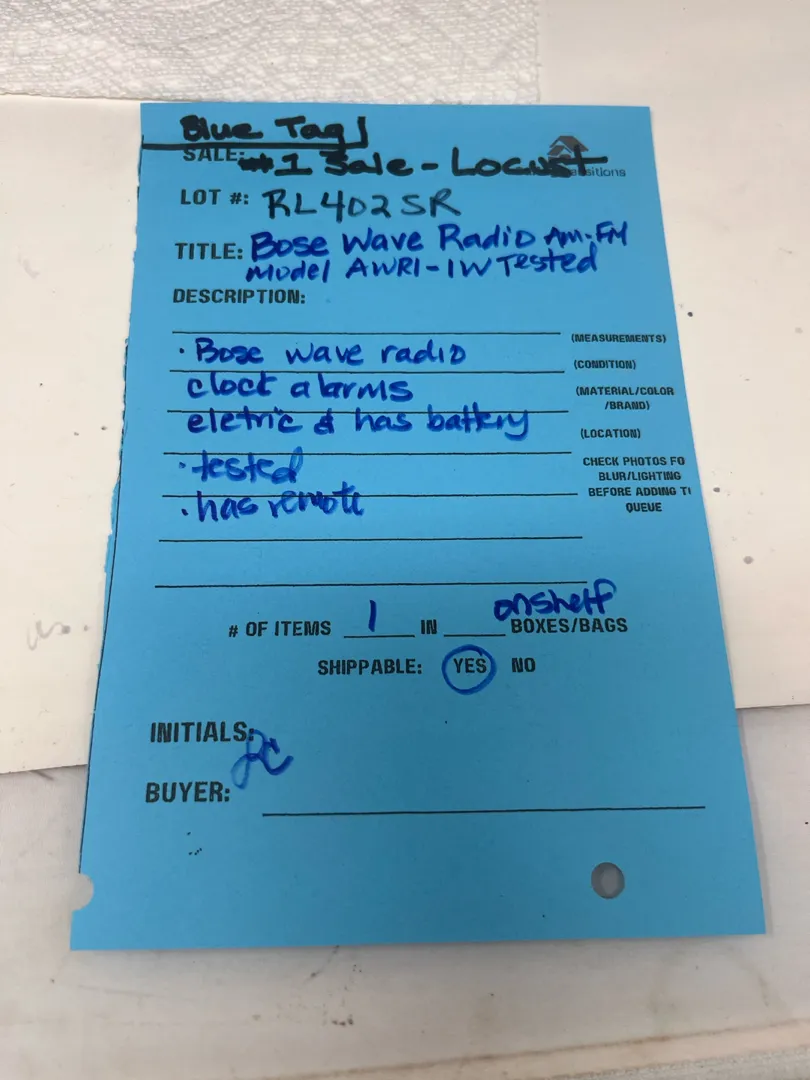 Blue Tag
SALE: #1 Sale - Locust
sitions
LOT #: RL402SR
TITLE: Bose Wave Radio Am-FM
Model AWR1-1W Tested
DESCRIPTION:
(MEASUREMENTS)
· Bose wave radio
(CONDITION)
clock alarms
(MATERIAL/COLOR
/BRAND)
eletric & has battery
(LOCATION)
· tested
CHECK PHOTOS FO
BLUR/LIGHTING
BEFORE ADDING T
QUEUE
· has remote
# OF ITEMS 1 IN onshelf BOXES/BAGS
SHIPPABLE: YES NO
INITIALS:
BUYER: